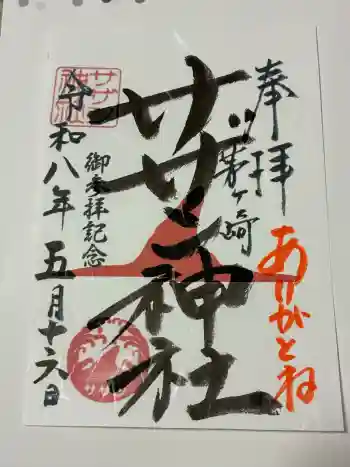 奉拝
茅ヶ崎
ありがとね
サザン神社
御参拝記念
令和八年五月十六日
サザン
神社